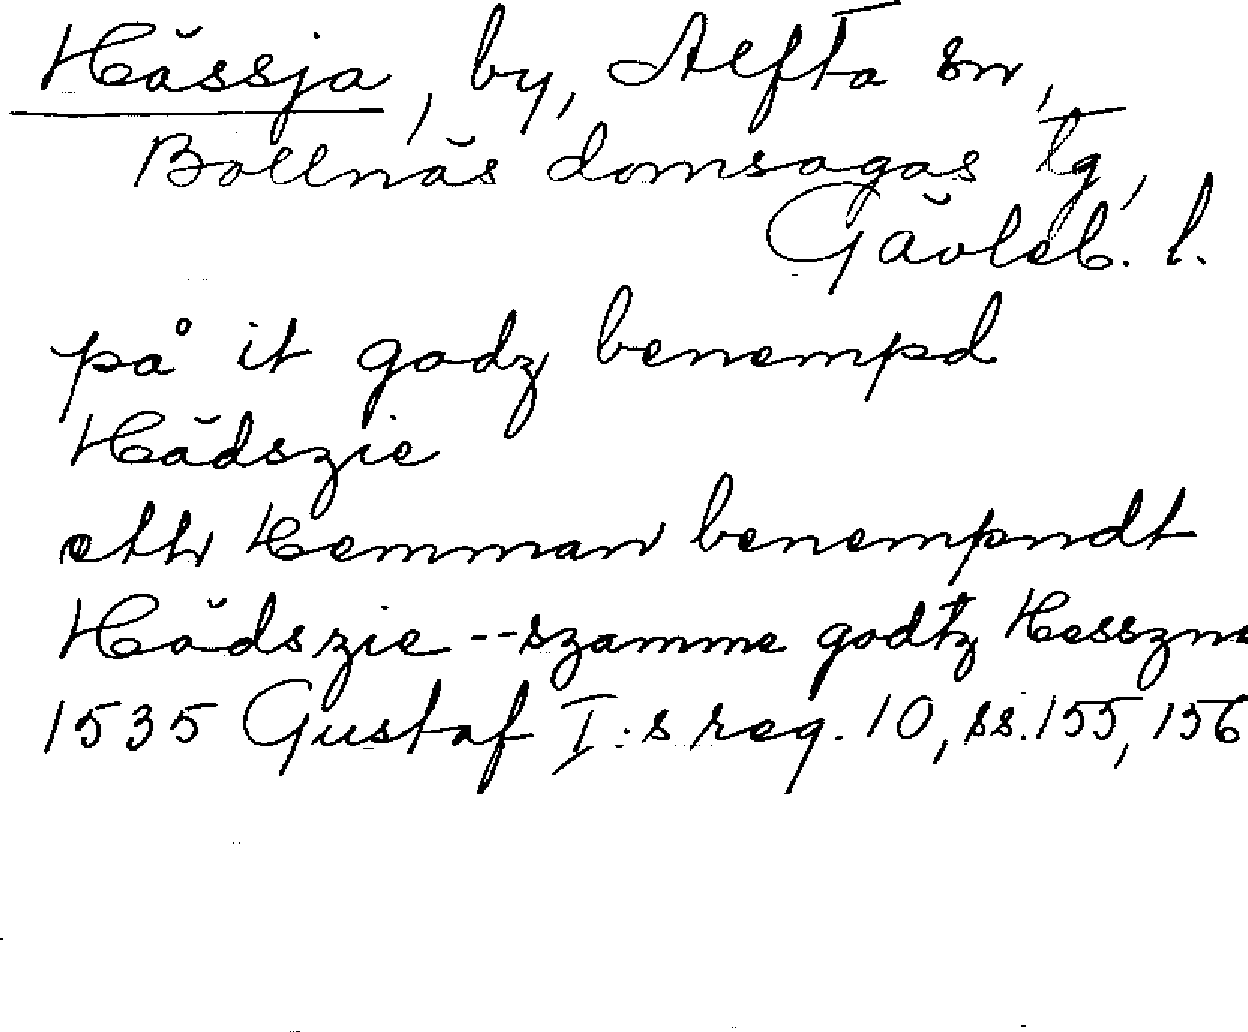 Hässja, by, Alfta sn,
Bollnäs domsagas tg,
Gävleb. l.
på it godz benempd
Hädszie
etth Hemman benempndt
Hädszie -- szamme godtz Hesszne
1535 Gustaf I:s reg. 10, ss. 155, 156